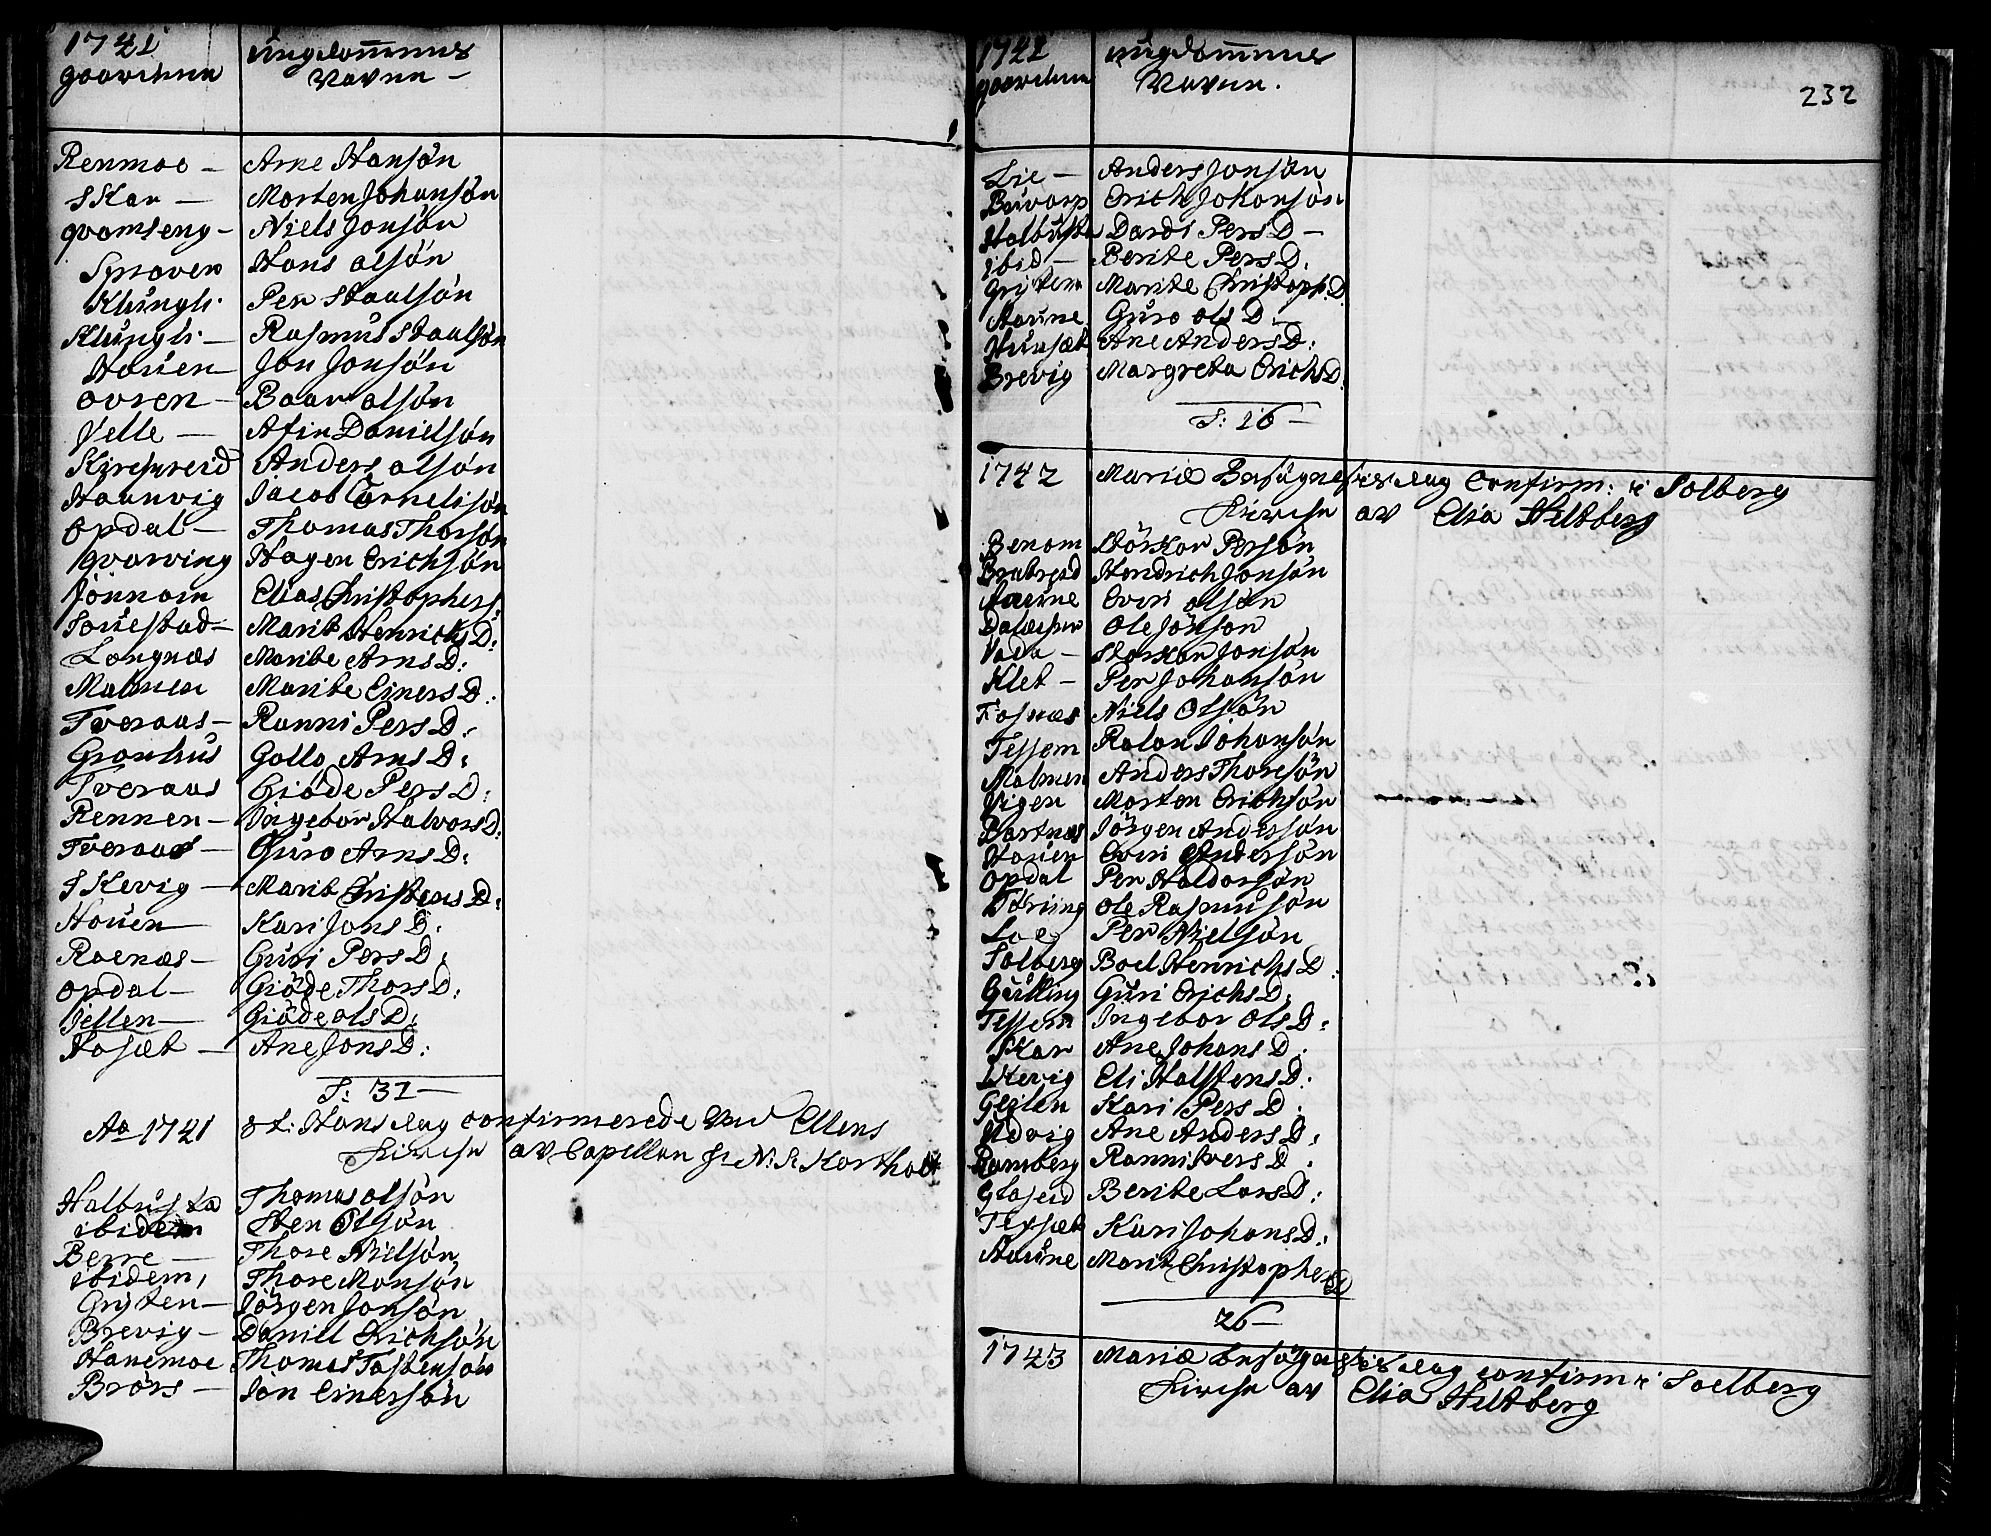 1741 Ungdommenes
Gaardenne Navne –
Renmoe – Arne Hansøn
Skar – Morten Johansøn
qvamseng – Niels Jonsøn
Hans Olsøn
Klüngli Per Staalsøn
Klüngli – Rasmus Staalsøn
Houen – Jon Jonsøn
ovren – Baar olsøn
Velle – Afin Danielsøn
Anders olsøn
Haanvig Jacob Cornelisøn
Opdal – Thomas Thorsøn
qvarving Hagen Erichsøn
Jønnom Elias Christophers:
Marit Henrichs D:
Langnæs Marite Arns D:
Malmen Marite Einers D:
Tveraas – Ranni Pers D:
Gronhus Gollo Arns D:
Tveraas Giøde Pers D:
Rennen – Ingebor Halvors D:
Tveraas – Guro Arns D:
Skevig – Marit Christens D:
Houen – Kari Jons D:
Raenæs – Guri Pers D:
Opdal – Giøde Thors D:
Jellen – Giøde ols D:
Hasæt – Ane Jons D:
S: 31 –
Ao 1741 St: Hans dag confirmerede ved Ellens
Kirche av Capellan Hr N: S: Kortholt
Halbusta Thomas olsøn
ibidem Sten Olsøn
Berre – Thore Nielsøn
ibidem, Thore Monsøn
Grÿten – Jørgen Jonsøn
Brevig – Daniel Erichsøn
Hanemoe Thomas Tostensøn
Brørs – Jon Einersøn
1741 ungdommenes 232
gaardenne Navne.
Lie – Anders Jonsøn
Buvarp Erich Johansøn
Halbusta Dardi Pers D –
ibid – Berite Pers D.
Gryten Marite Christoph. D.
Haüne Guro ols D:
Hunsæt Ane Anders D:
Brevig Margreta Erichs D.
S: 16 –
1742 Mariæ Besøgnelsis dag Confirm: i Solberg
Kirche av Elia Heltberg
Benom Størkor Persøn
Hendrich Jonsøn
Haüne Even olsøn
Ole Jonson
Vada – Størkor Jonsøn
Klet – Per Johansøn
Fosnæs Niels Olsøn
Tessem Rolan Johansøn
Malmen Anders Thoresøn
Vigen Morten Erichsøn
Bartnæs Jörgen Andersøn
Houen Even Andersøn
Opdal Per Haldorsøn
Tøring Ole Rasmusøn
Loe Per Nielsøn
Solberg Boel Henrichs D:
Gulling Guri Erichs D:
Tessem Ingebor Ols D:
Skar Ane Johans D:
Skevig Eli Halstens D:
Geglen Kari Pers D:
Udvig Ane Anders D:
Ramberg Ranni Ivers D:
Glaseid Berite Lars D:
Texsæt Kari Johans D:
Haüne Marit Christophers D
26 –
1743 Mariæ besøgelsis dag confirm i Soelberg
Kirche av Elia Heltberg